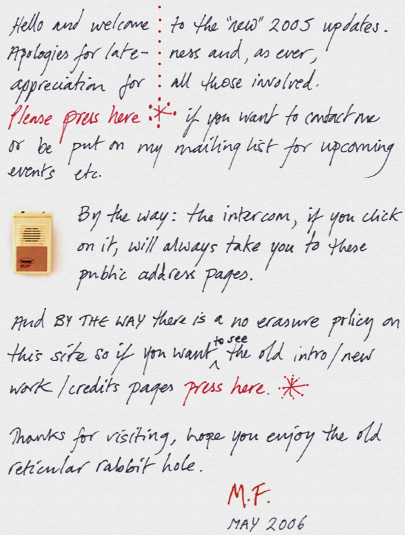 Hello and welcome to the "new" 2005 updates.
Apologies for late- ness and, as ever,
appreciation for all those involved.
Please press here * if you want to contact me
or be put on my mailing list for upcoming
events etc.
By the way: the intercom, if you click
on it, will always take you to these
public address pages.
And BY THE WAY there is a no erasure policy on
this site so if you want ^ to see the old intro/new
work/credits pages press here. *
Thanks for visiting, hope you enjoy the old
reticular rabbit hole.
M.F.
MAY 2006